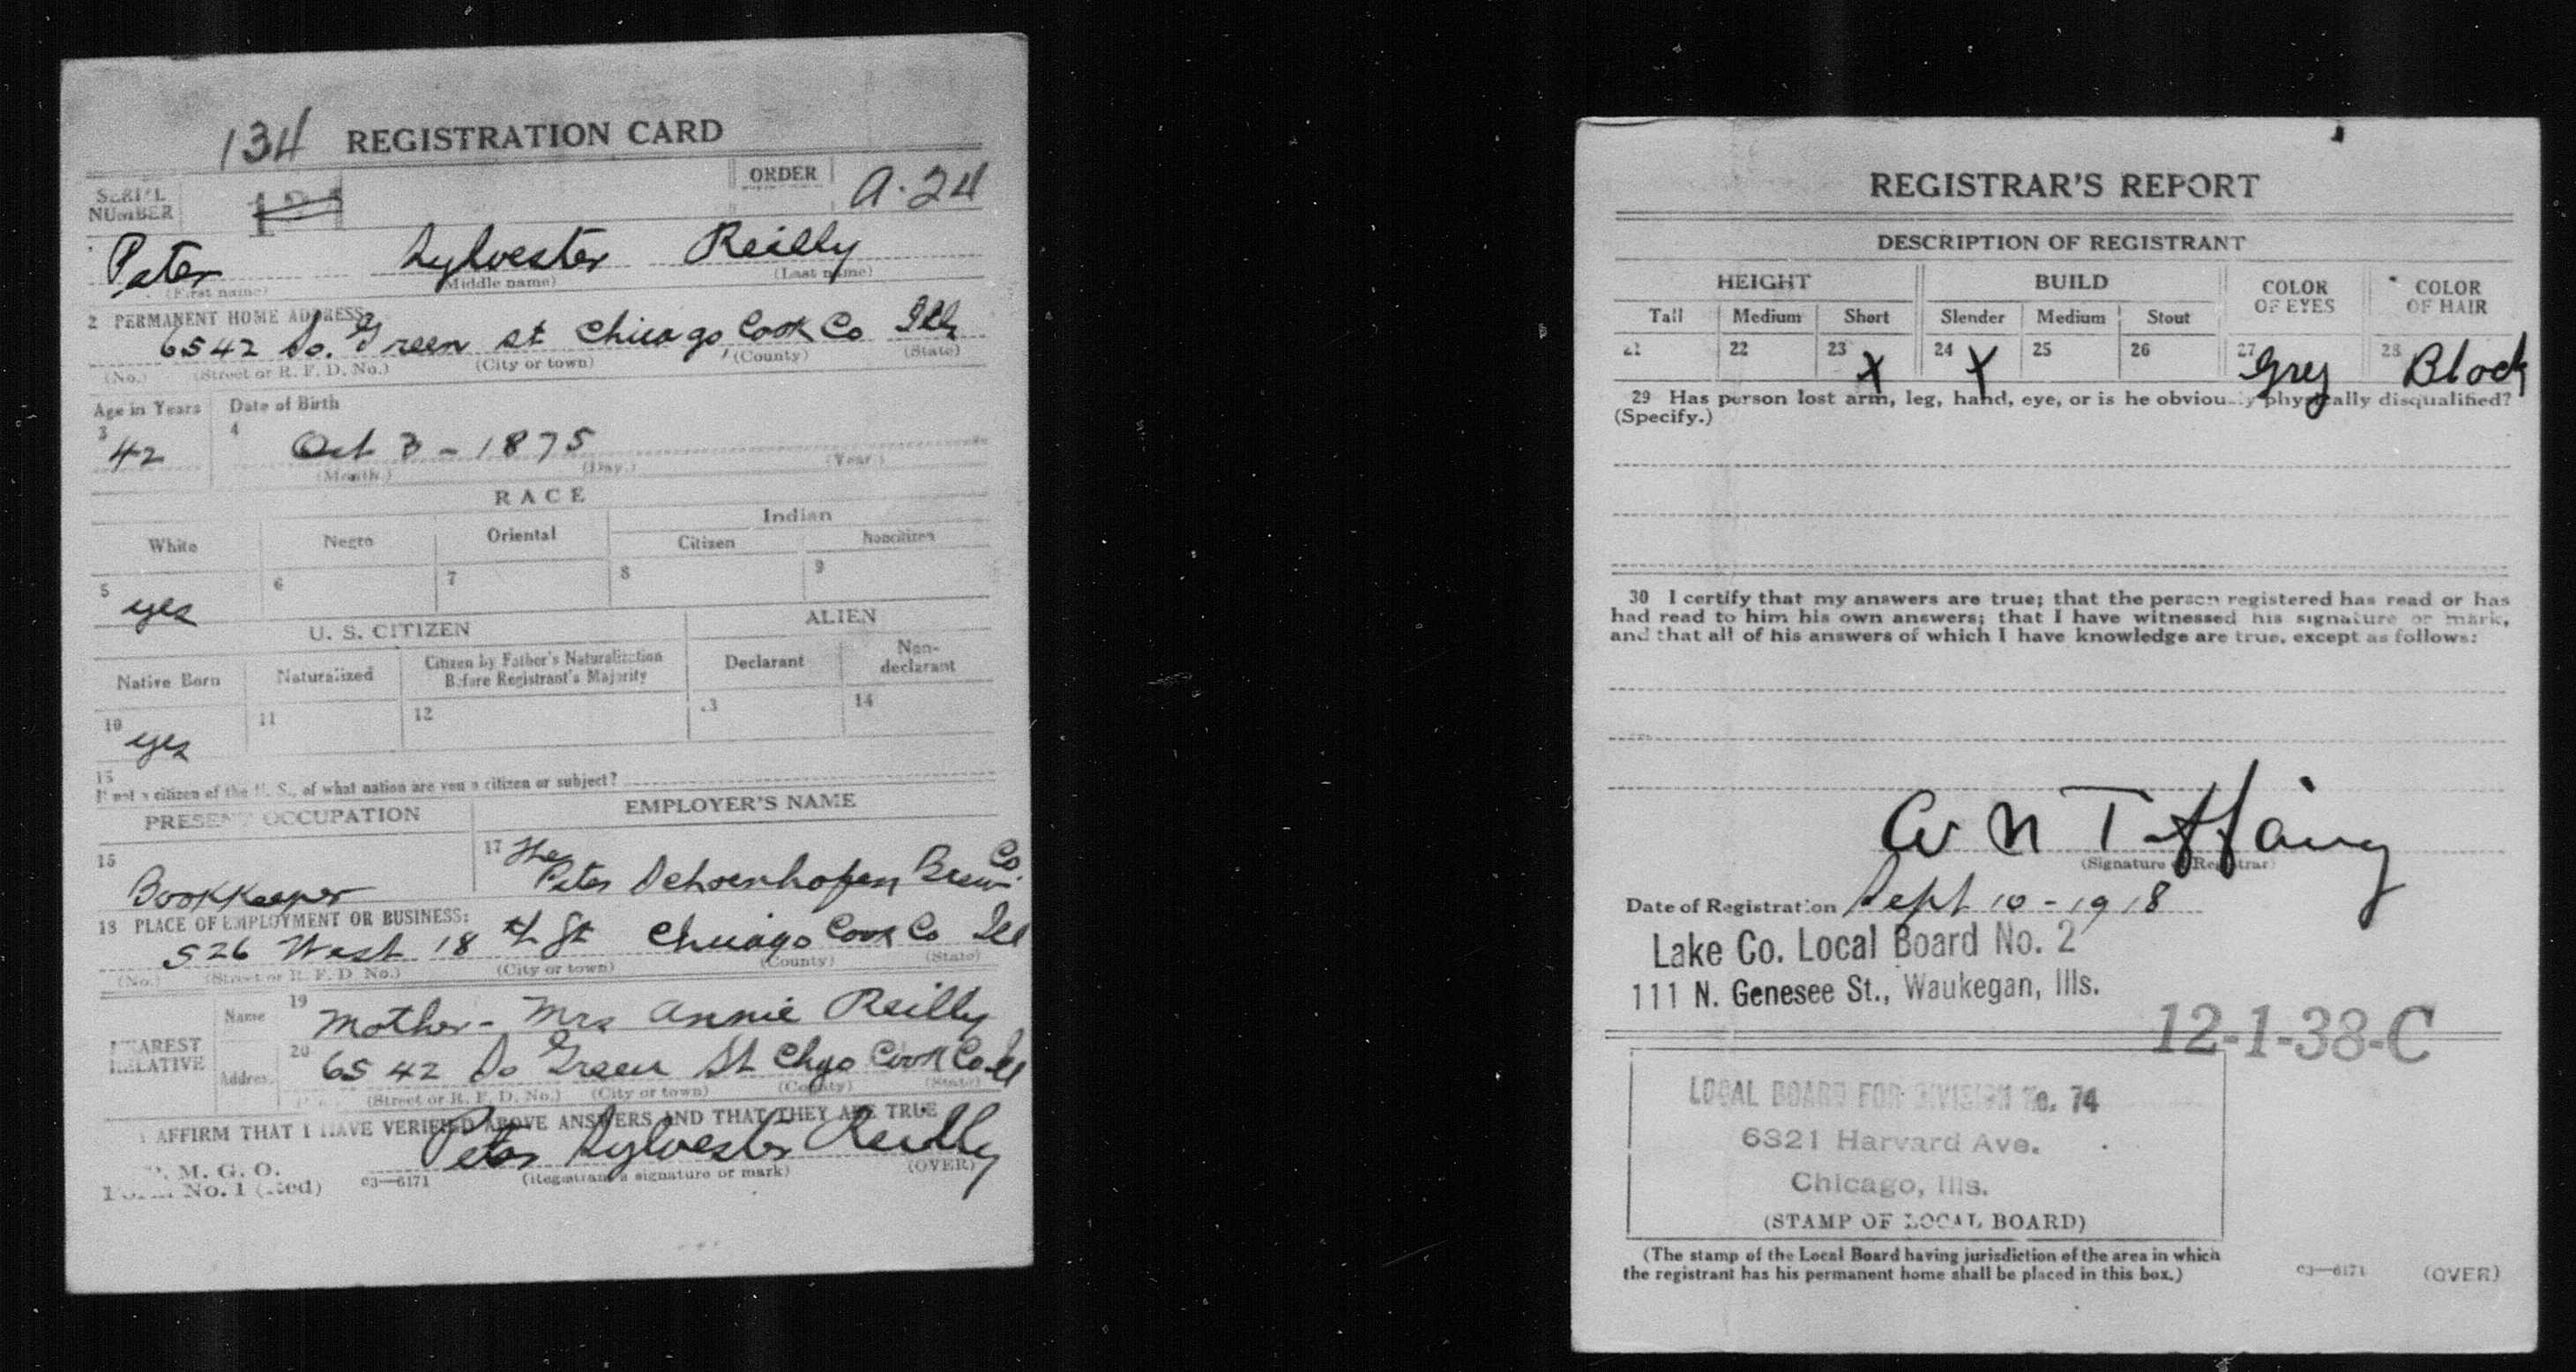 134 REGISTRATION CARD
SERIAL NUMBER ORDER A-24
Peter Sylvester Reilly
(First name) (Middle name) (Last name)
2 PERMANENT HOME ADDRESS:
6542 So. Green St Chicago Cook Co Ills
(No.) (Street or R. F. D. No.) (City or town) (County) (State)
Age in Years Date of Birth
3 4
42 Oct 3 - 1875
(Month.) (Day.) (Year.)
RACE
White Negro Oriental Indian
Citizen Noncitizen
5 6 7 8 9
yes
U. S. CITIZEN ALIEN
Native Born Naturalized Citizen by Father's Naturalization Before Registrant's Majority Declarant Non-declarant
10 11 12 13 14
yes
15
If not a citizen of the U. S., of what nation are you a citizen or subject?
PRESENT OCCUPATION EMPLOYER'S NAME
16 17
Bookkeeper The Peter Schoenhofen Brew. Co.
18 PLACE OF EMPLOYMENT OR BUSINESS:
526 West 18 th St Chicago Cook Co Ill
(No.) (Street or R. F. D. No.) (City or town) (County) (State)
NEAREST RELATIVE
Name 19 Mother - Mrs Annie Reilly
Address 20 6542 So Green St Chgo Cook Co Ill
(Street or R. F. D. No.) (City or town) (County) (State)
I AFFIRM THAT I HAVE VERIFIED ABOVE ANSWERS AND THAT THEY ARE TRUE
Peter Sylvester Reilly
P. M. G. O.
Form No. 1 (Red) 03—6171 (Registrant's signature or mark) (OVER)
REGISTRAR'S REPORT
DESCRIPTION OF REGISTRANT
HEIGHT BUILD COLOR OF EYES COLOR OF HAIR
Tall Medium Short Slender Medium Stout
21 22 23 X 24 X 25 26 27 Grey 28 Black
29 Has person lost arm, leg, hand, eye, or is he obviously physically disqualified?
(Specify.)
30 I certify that my answers are true; that the person registered has read or has
had read to him his own answers; that I have witnessed his signature or mark,
and that all of his answers of which I have knowledge are true, except as follows:
W N Tiffany
(Signature of Registrar)
Date of Registration Sept 10 - 1918
Lake Co. Local Board No. 2
111 N. Genesee St., Waukegan, Ills.
12-1-38-C
LOCAL BOARD FOR DIVISION No. 74
6321 Harvard Ave.
Chicago, Ills.
(STAMP OF LOCAL BOARD)
(The stamp of the Local Board having jurisdiction of the area in which
the registrant has his permanent home shall be placed in this box.)
03—6171 (OVER)